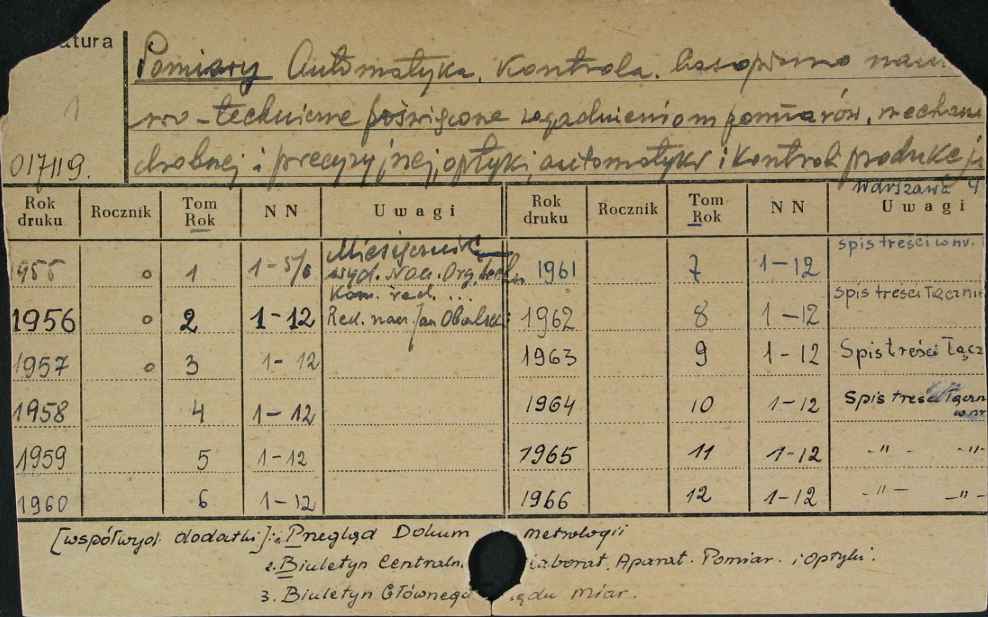 atura
Pomiary Automatyka. Kontrola. Czasopismo nau
1
wo-techniczne poświęcone zagadnieniom pomiarów, mechani
017119.
drobnej i precyzyjnej, optyki, automatyki i kontroli produkcji
Warszawa 4
Rok druku Rocznik Tom Rok NN Uwagi Rok druku Rocznik Tom Rok NN Uwagi
1955 o 1 1-5/6 Miesięcznik 1961 7 1-12 spis treści w nr. 1
wyd. Nacz. Org. Techn.
Kom. red. ...
1956 o 2 1-12 Red. nacz. Jan Obalski 1962 8 1-12 spis treści łącznie
1957 o 3 1-12 1963 9 1-12 Spis treści łącz
1958 4 1-12 1964 10 1-12 Spis treści łączn
w nr
1959 5 1-12 1965 11 1-12 -"- -"-
1960 6 1-12 1966 12 1-12 -"- -"-
[współwyd. dodatki]: 1. Przegląd Dokum metrologii
2. Biuletyn Centraln. laborat. Aparat. Pomiar. i Optyki.
3. Biuletyn Głównego ędu Miar.